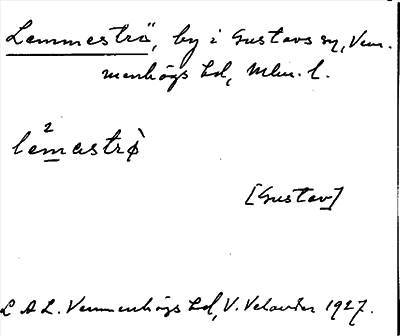 Lemmeströ, by i Gustavs sn, Vem-
menhögs hd, Mlm. l.
2
lemastrǿ̀
[Gustav]
L A L. Vemmenhögs hd, V. Velander 1927.